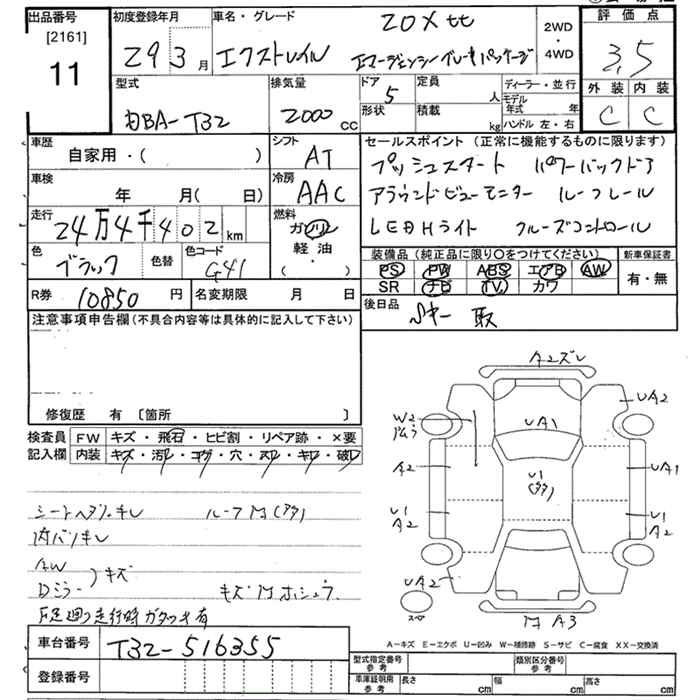 出品番号 [2161] 11
初度登録年月 29 3月
車名・グレード 20X tt
エクストレイル エマージェンシーブレーキパッケージ
2WD・4WD
評価点 3.5
外装 内装
C C
型式 DBA-T32
排気量 2000 cc
ドア 5
形状
定員 人
積載 kg
ディーラー・並行
モデル年式 年
ハンドル 左・右
車歴 自家用・( )
シフト AT
車検 年 月( 日)
冷房 AAC
走行 24万4千402 km
燃料 ガソリン 軽油・( )
色 ブラック 色替
色コード G41
R券 10850 円
名変期限 月 日
セールスポイント(正常に機能するものに限ります)
プッシュスタート パワーバックドア
アラウンドビューモニター ルーフレール
LEDHライト クルーズコントロール
装備品(純正品に限り○をつけてください)
PS PW ABS エアB AW
SR ナビ TV カワ
新車保証書 有・無
後日品 Sキー 取
注意事項申告欄(不具合内容等は具体的に記入して下さい)
修復歴 有 〔箇所 〕
検査員記入欄 FW キズ・飛石・ヒビ割・リペア跡・×要
内装 キズ・汚レ・コゲ・穴・スレ・キレ・破レ
シートヘタリ・キレ ルーフM(タタ)
内バリキレ
AW
Dミラー )キズ キズMホシュウ
下足廻り走行時ガタツキ有
A2ズレ
UA2
W2
UA1
A2
U1
(タタ)
UA1
U1
A2
U1
A2
UA2
スペア
M A3
A-キズ E-エクボ U-凹み W-補修跡 S-サビ C-腐食 XX-交換済
車台番号 T32-516355
登録番号
型式指定番号 参考
類別区分番号 参考
車庫証明用 参考 長さ cm 幅 cm 高さ cm